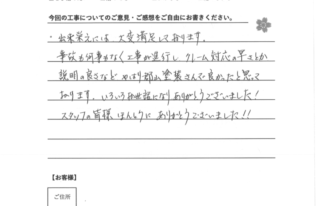 今回の工事についてのご意見・ご感想をご自由にお書きください。
・出来栄えには 大変満足しております。
事故も何事もなく工事が進行し クレーム対応の早さとか
説明の良さなど やはり郡山塗装さんで良かったと思って
おります。いろいろお世話になりありがとうございました！
スタッフの皆様 ほんとうに ありがとうございました！！
【お客様】
ご住所